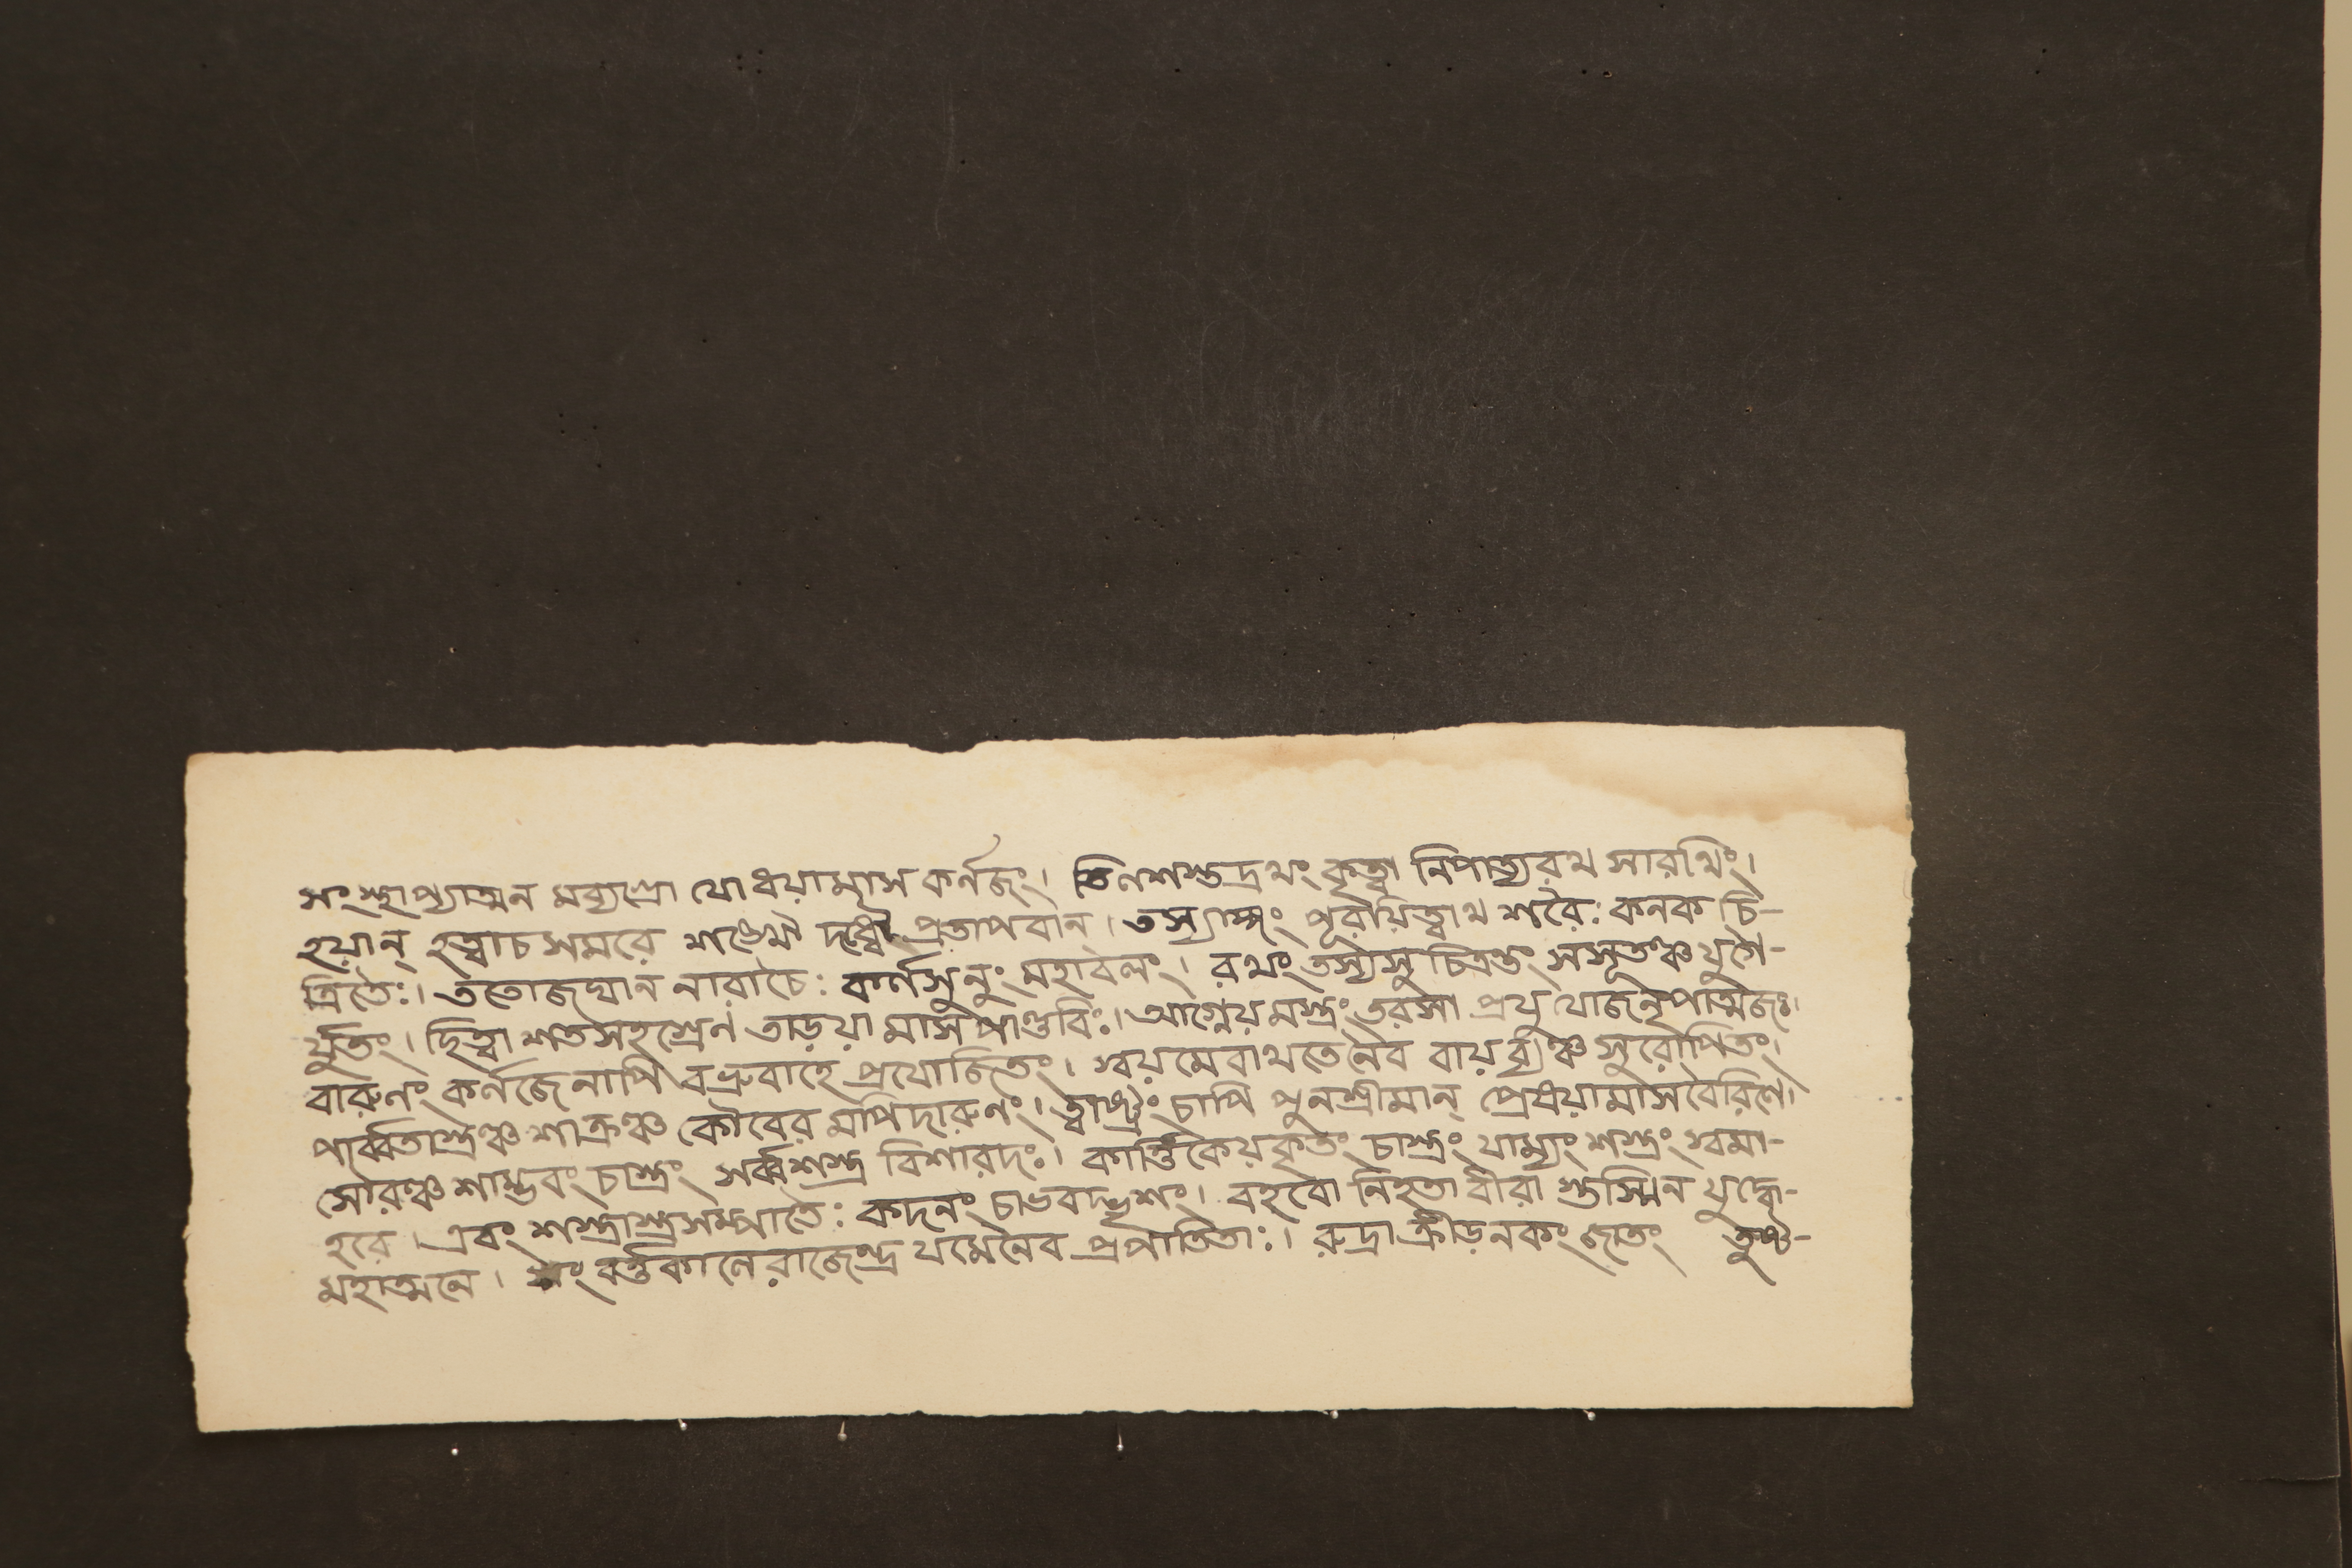 সংস্থাপ্যাত্মন মব্যগ্রো যোধয়ামাস কর্নজং। তিনশস্তদ্রথং কৃত্বা নিপাত্যরথ সারথিং।
হয়ান্ হত্বাচসমরে শঙ্খৌ দধ্মৌ প্রতাপবান্। তস্যাঙ্গং পূরয়িত্বাথ শরৈঃ কনক চি-
ত্রিতৈঃ। ততোজঘান নারাচৈঃ কার্ণসুনুং মহাবলং। রথং তস্যসু চিত্রন্তং সসূতঞ্চ যুগৈ-
র্যুতং। ছিত্বা শতসহস্রেন তাড়য়া মাস পাণ্ডবিঃ। আগ্নেয়মস্ত্রং তরসা প্রযুযোজনৃপাত্মজঃ।
বারুনং কর্নজেনাপি বভ্রুবাহে প্রযোজিতং। স্বয়মেবাথতেনৈব বায়ব্যঞ্চ সুরোপিতং।
পার্ব্বতাস্ত্রঞ্চ শাক্রঞ্চ কৌবের মপিদারুনং। ত্বাষ্ট্রং চাপি পুনশ্রীমান্ প্রেষয়ামাসবৈরিণে।
সৌরঞ্চ শাম্ভবং চাস্ত্রং সর্ব্বশস্ত্র বিশারদঃ। কার্ত্তিকেয়কৃতং চাস্ত্রং যাম্যং শস্ত্রং স্বমা-
হরে। এবং শস্ত্রাস্ত্রসম্পাতৈঃ কদনং চাভবদ্ভৃশং। বহবো নিহতা বীরা স্তস্মিন যুদ্ধে-
মহাত্মনে। সংবর্ত্তকানেরাজেন্দ্র যমেনৈব প্রপাতিতাঃ। রুদ্রাক্রীড়নকং জাতং তুঞ্চ-